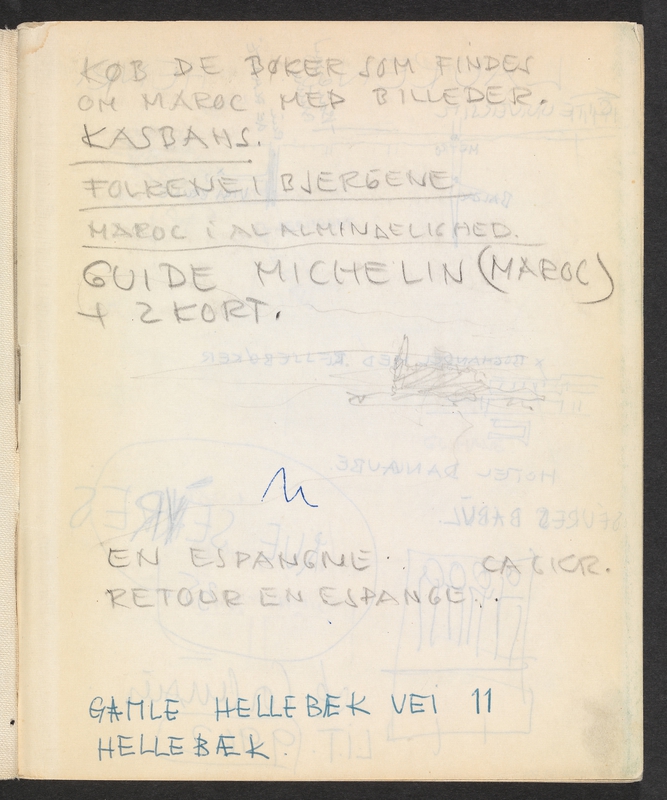 KØB DE BØKER SOM FINDES
OM MAROC MED BILLEDER.
KASBAHS.
FOLKENE I BJERGENE
MAROC i AL ALMINDELIGHED.
GUIDE MICHELIN (MAROC)
+ 2 KORT.
EN ESPANGNE
RETOUR EN ESPANGE..
GAMLE HELLEBÆK VEI 11
HELLEBÆK.